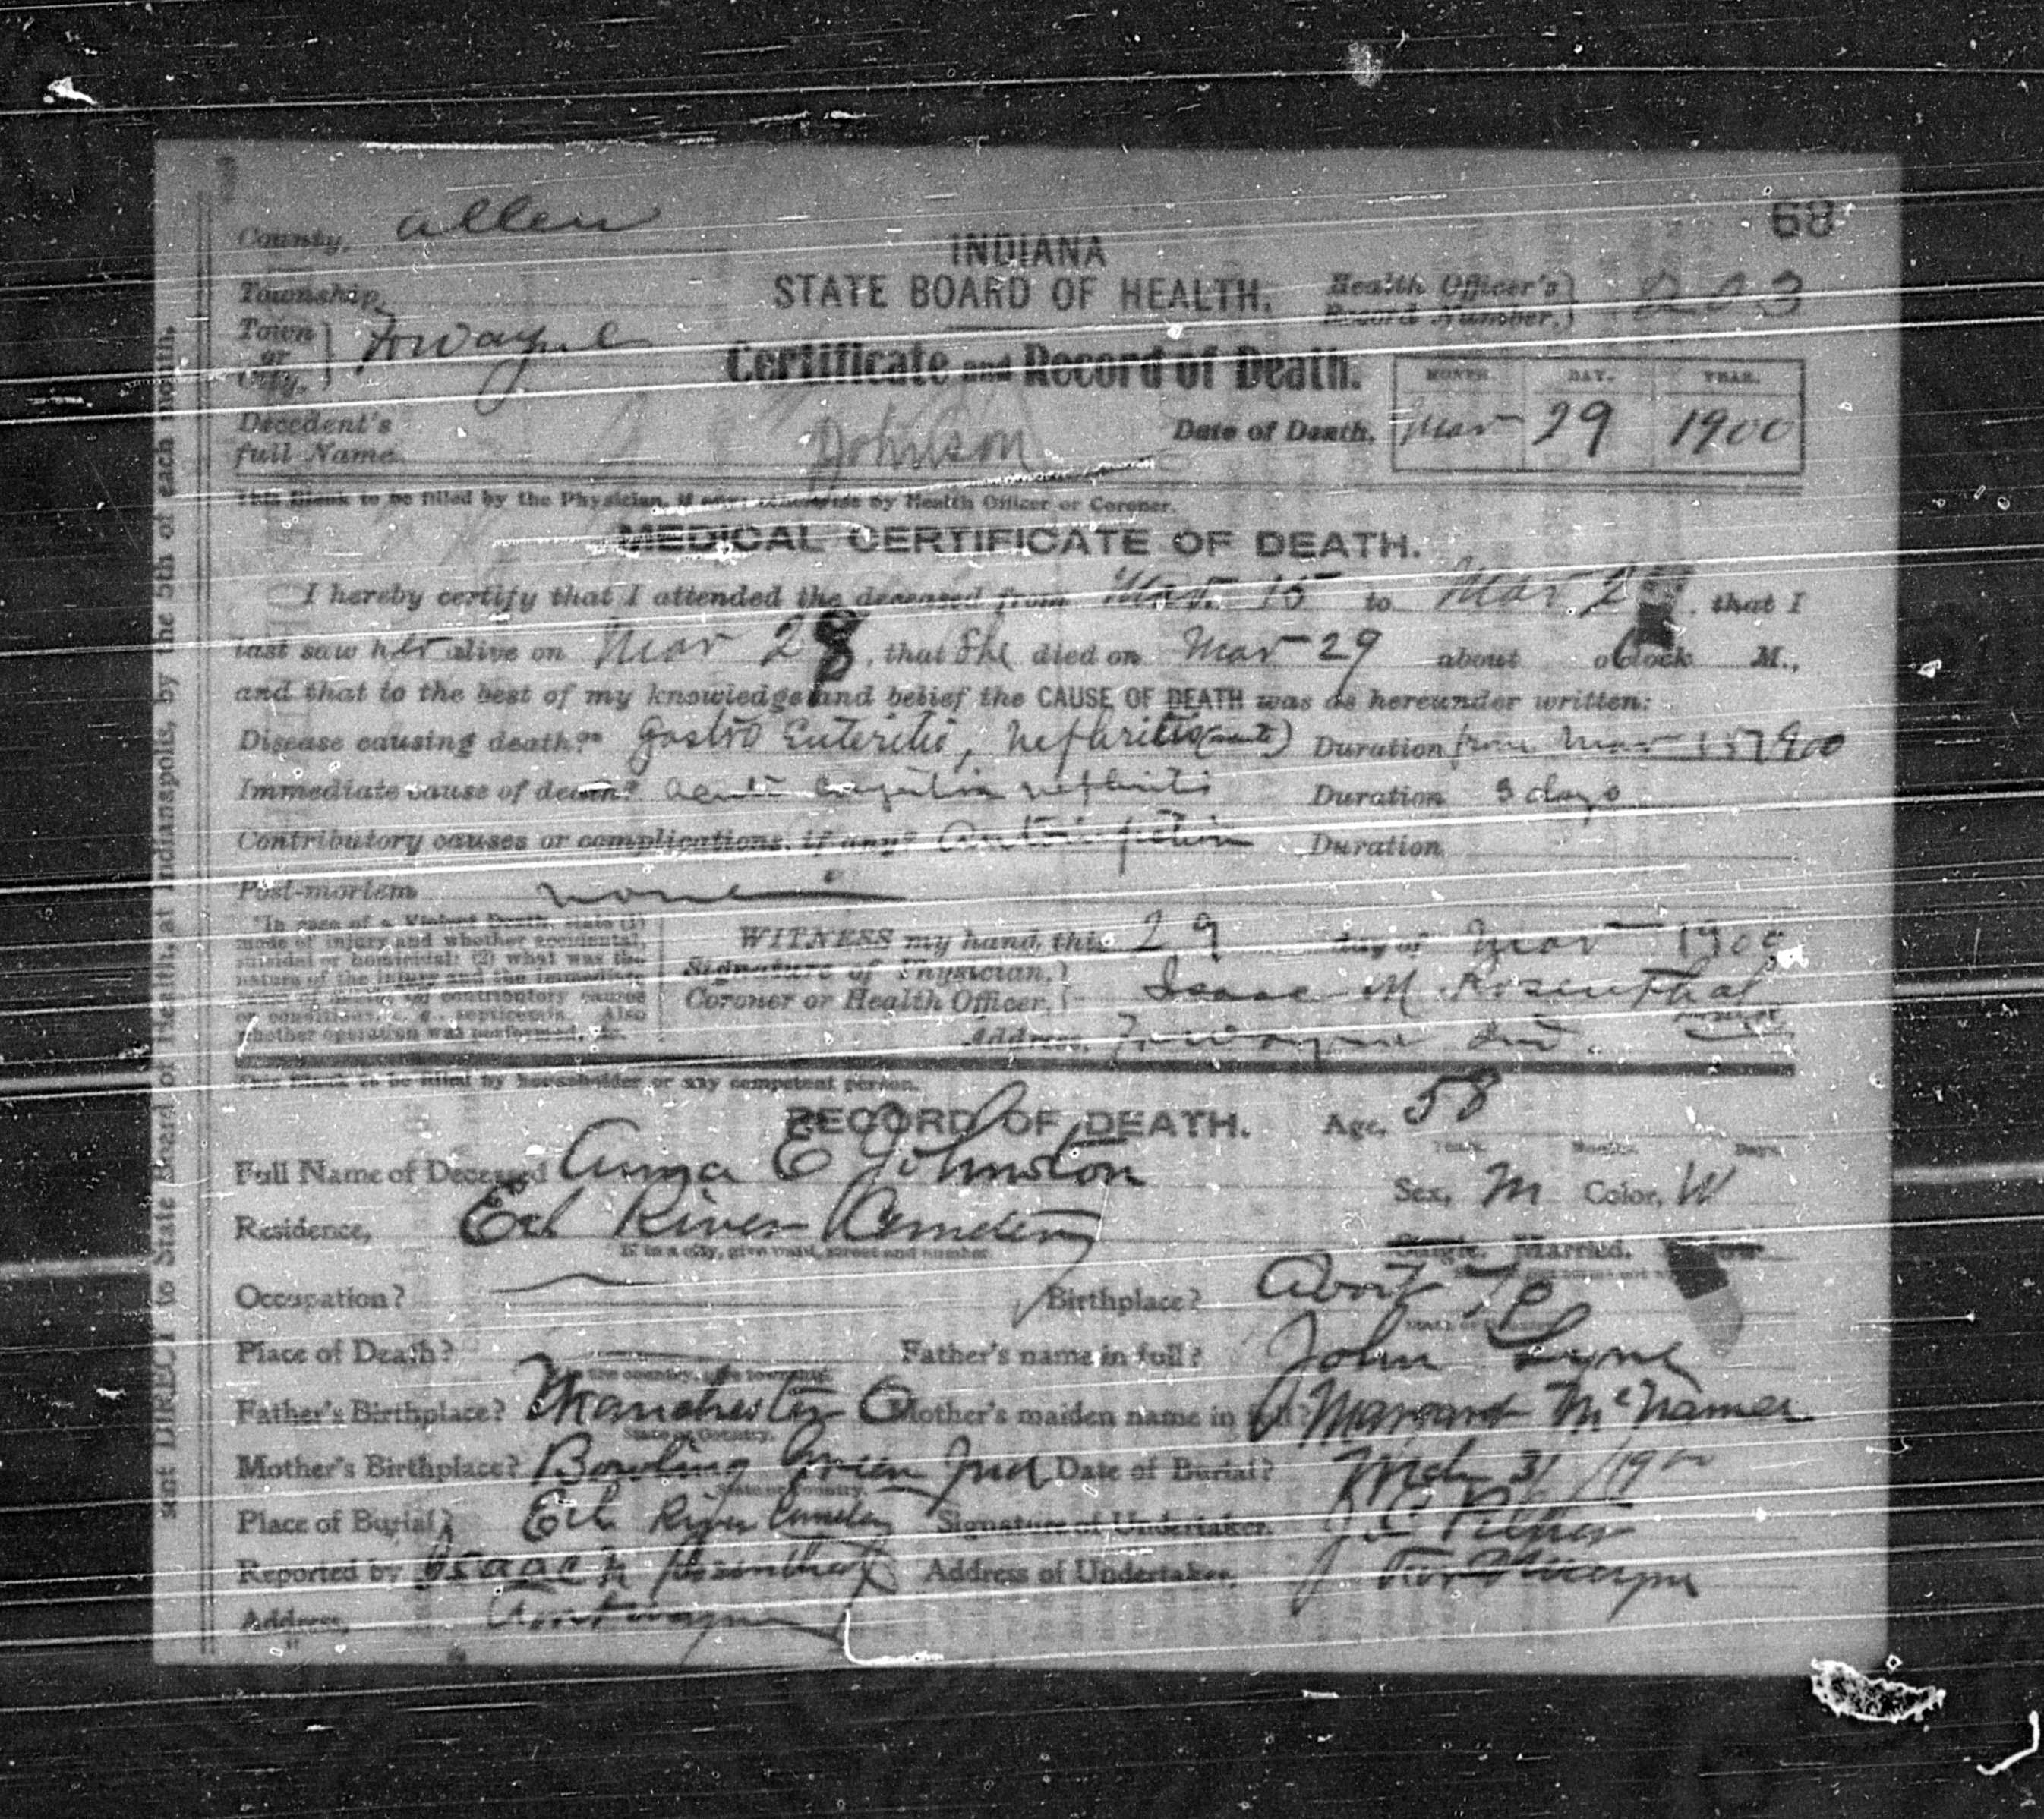 68
County, allen
INDIANA
Township,
STATE BOARD OF HEALTH.
Health Officer's Record Number, 203
Town or City. Ft wayne
Certificate and Record of Death.
MONTH. DAY. YEAR.
Decedent's full Name Johnson
Date of Death, Mar 29 1900
This Blank to be filled by the Physician, if any, otherwise by Health Officer or Coroner.
MEDICAL CERTIFICATE OF DEATH.
I hereby certify that I attended the deceased from Mar. 15 to Mar 2 that I
last saw her alive on Mar 28, that She died on Mar 29 about oClock M.,
and that to the best of my knowledge and belief the CAUSE OF DEATH was as hereunder written:
Disease causing death?* Gastro Enteritis, Nephritis (acute) Duration from Mar 15 1900
Immediate cause of death? acute nephritis Duration 3 days
Contributory causes or complications, if any? Duration
Post-mortem none
*In case of a Violent Death, state (1)
mode of injury and whether accidental,
suicidal or homicidal; (2) what was the
nature of the injury and the immediate
cause of death; (3) contributory causes
or conditions, e. g., septicemia. Also
whether operation was performed, &c.
WITNESS my hand, this 29 day of Mar 1900
Signature of Physician, Coroner or Health Officer, Isaac M. Rosenthal
Address, Ft Wayne Ind.
This Blank to be filled by householder or any competent person.
RECORD OF DEATH. Age, 58
Years Months Days
Full Name of Deceased Anna E Johnston
Sex, M Color, W
Residence, Eel River Cemetery
If in a city, give ward, street and number
Single. Married.
Occupation? Birthplace?
State or Country.
Place of Death? Father's name in full? John
If in the country, give township.
Father's Birthplace? Manchester O Mother's maiden name in full? Margaret McNamer
State or Country.
Mother's Birthplace? Bowling Green Ind Date of Burial? Mch 31/1900
State or Country.
Place of Burial? Eel River Cemetery Signature of Undertaker. J. C. Peltier
Reported by Isaac M Rosenthal Address of Undertaker, Fort Wayne
Address, Fort wayne
sent DIRECT to State Board of Health, at Indianapolis, by the 5th of each month.